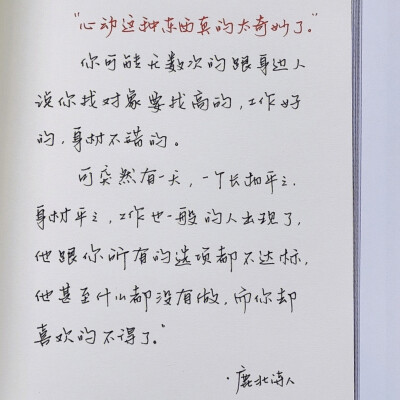 “心动这种东西真的太奇妙了。”
你可能无数次的跟身边人
说你找对象要找高的,工作好
的,身材不错的。
可突然有一天,一个长相平平
身材平平,工作也一般的人出现了,
他跟你所有的选项都不达标,
他甚至什么都没有做,而你却
喜欢的不得了。”
·鹿北诗人